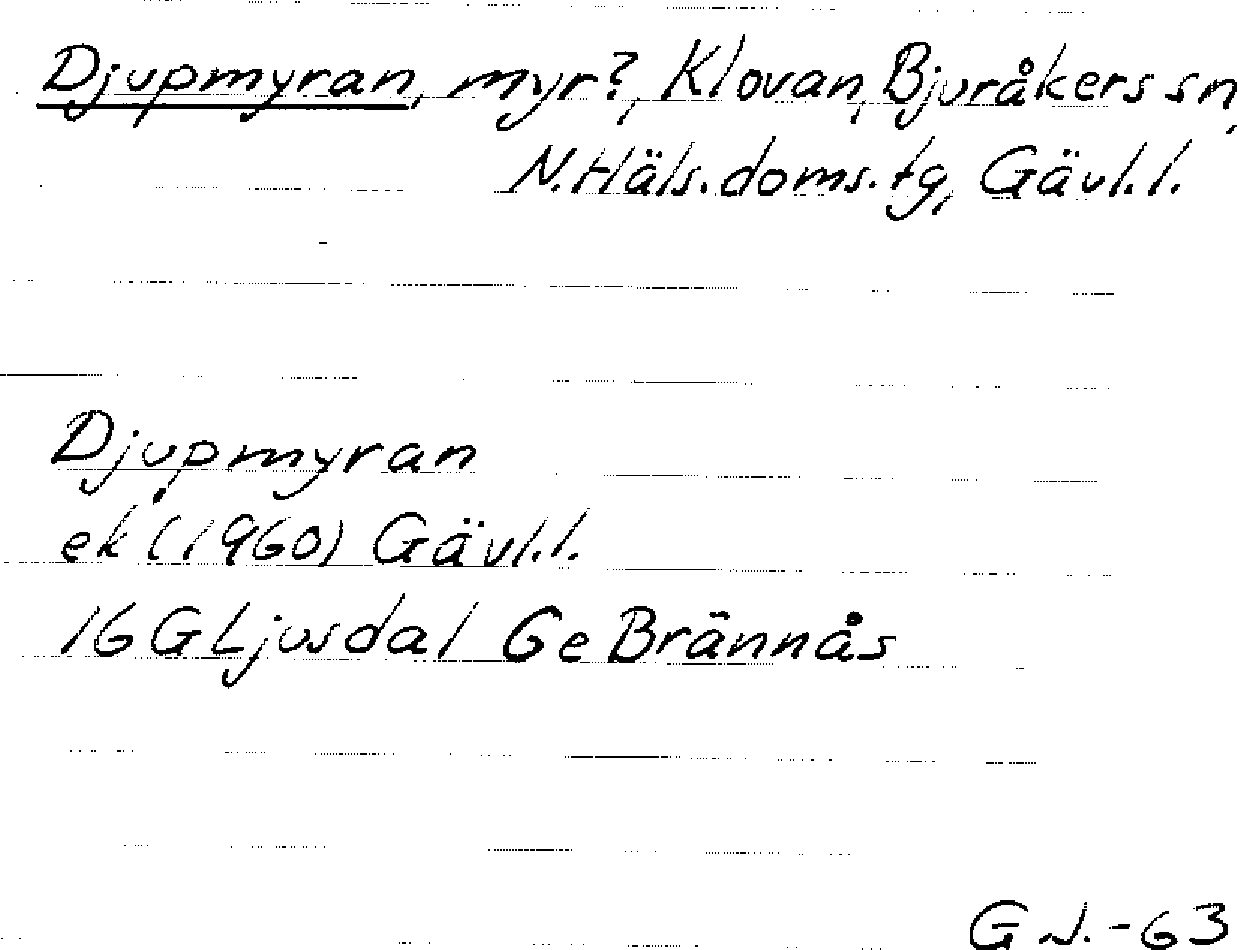 Djupmyran, myr?, Klovan, Bjuråkers sn,
N.Häls.doms.tg, Gävl.l.
Djupmyran
ek (1960) Gävl.l.
16 G Ljusdal Ge Brännås
G J.-63